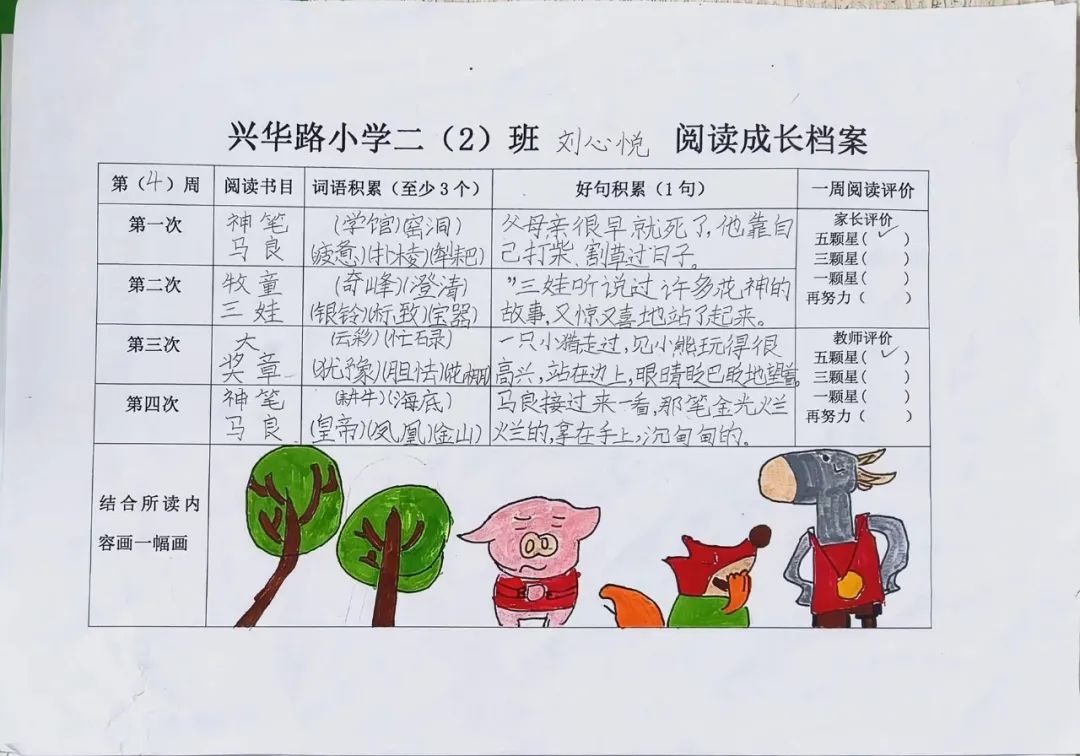 兴华路小学二（2）班 刘心悦 阅读成长档案
第（4）周 阅读书目 词语积累（至少3个） 好句积累（1句） 一周阅读评价
第一次 神笔 (学馆)(窑洞) 父母亲很早就死了,他靠自 家长评价
马良 (疲惫)(朴棱)(犁耙) 己打柴、割草过日子。 五颗星(✓)
三颗星( )
一颗星( )
第二次 牧童 (奇峰)(澄清) "三娃听说过许多花神的 再努力( )
三娃 (银铃)(标致)(宝器) 故事,又惊又喜地站了起来。
第三次 大 (云彩)(忙碌) 一只小猪走过,见小熊玩得很 教师评价
奖章 (犹豫)(胆怯) 高兴,站在边上,眼睛眨巴眨地望着。 五颗星(✓)
三颗星( )
第四次 神笔 (耕牛)(海底) 马良接过来一看,那笔金光灿 一颗星( )
马良 (皇帝)(凤凰)(金山) 灿的,拿在手上,沉甸甸的。 再努力( )
结合所读内
容画一幅画